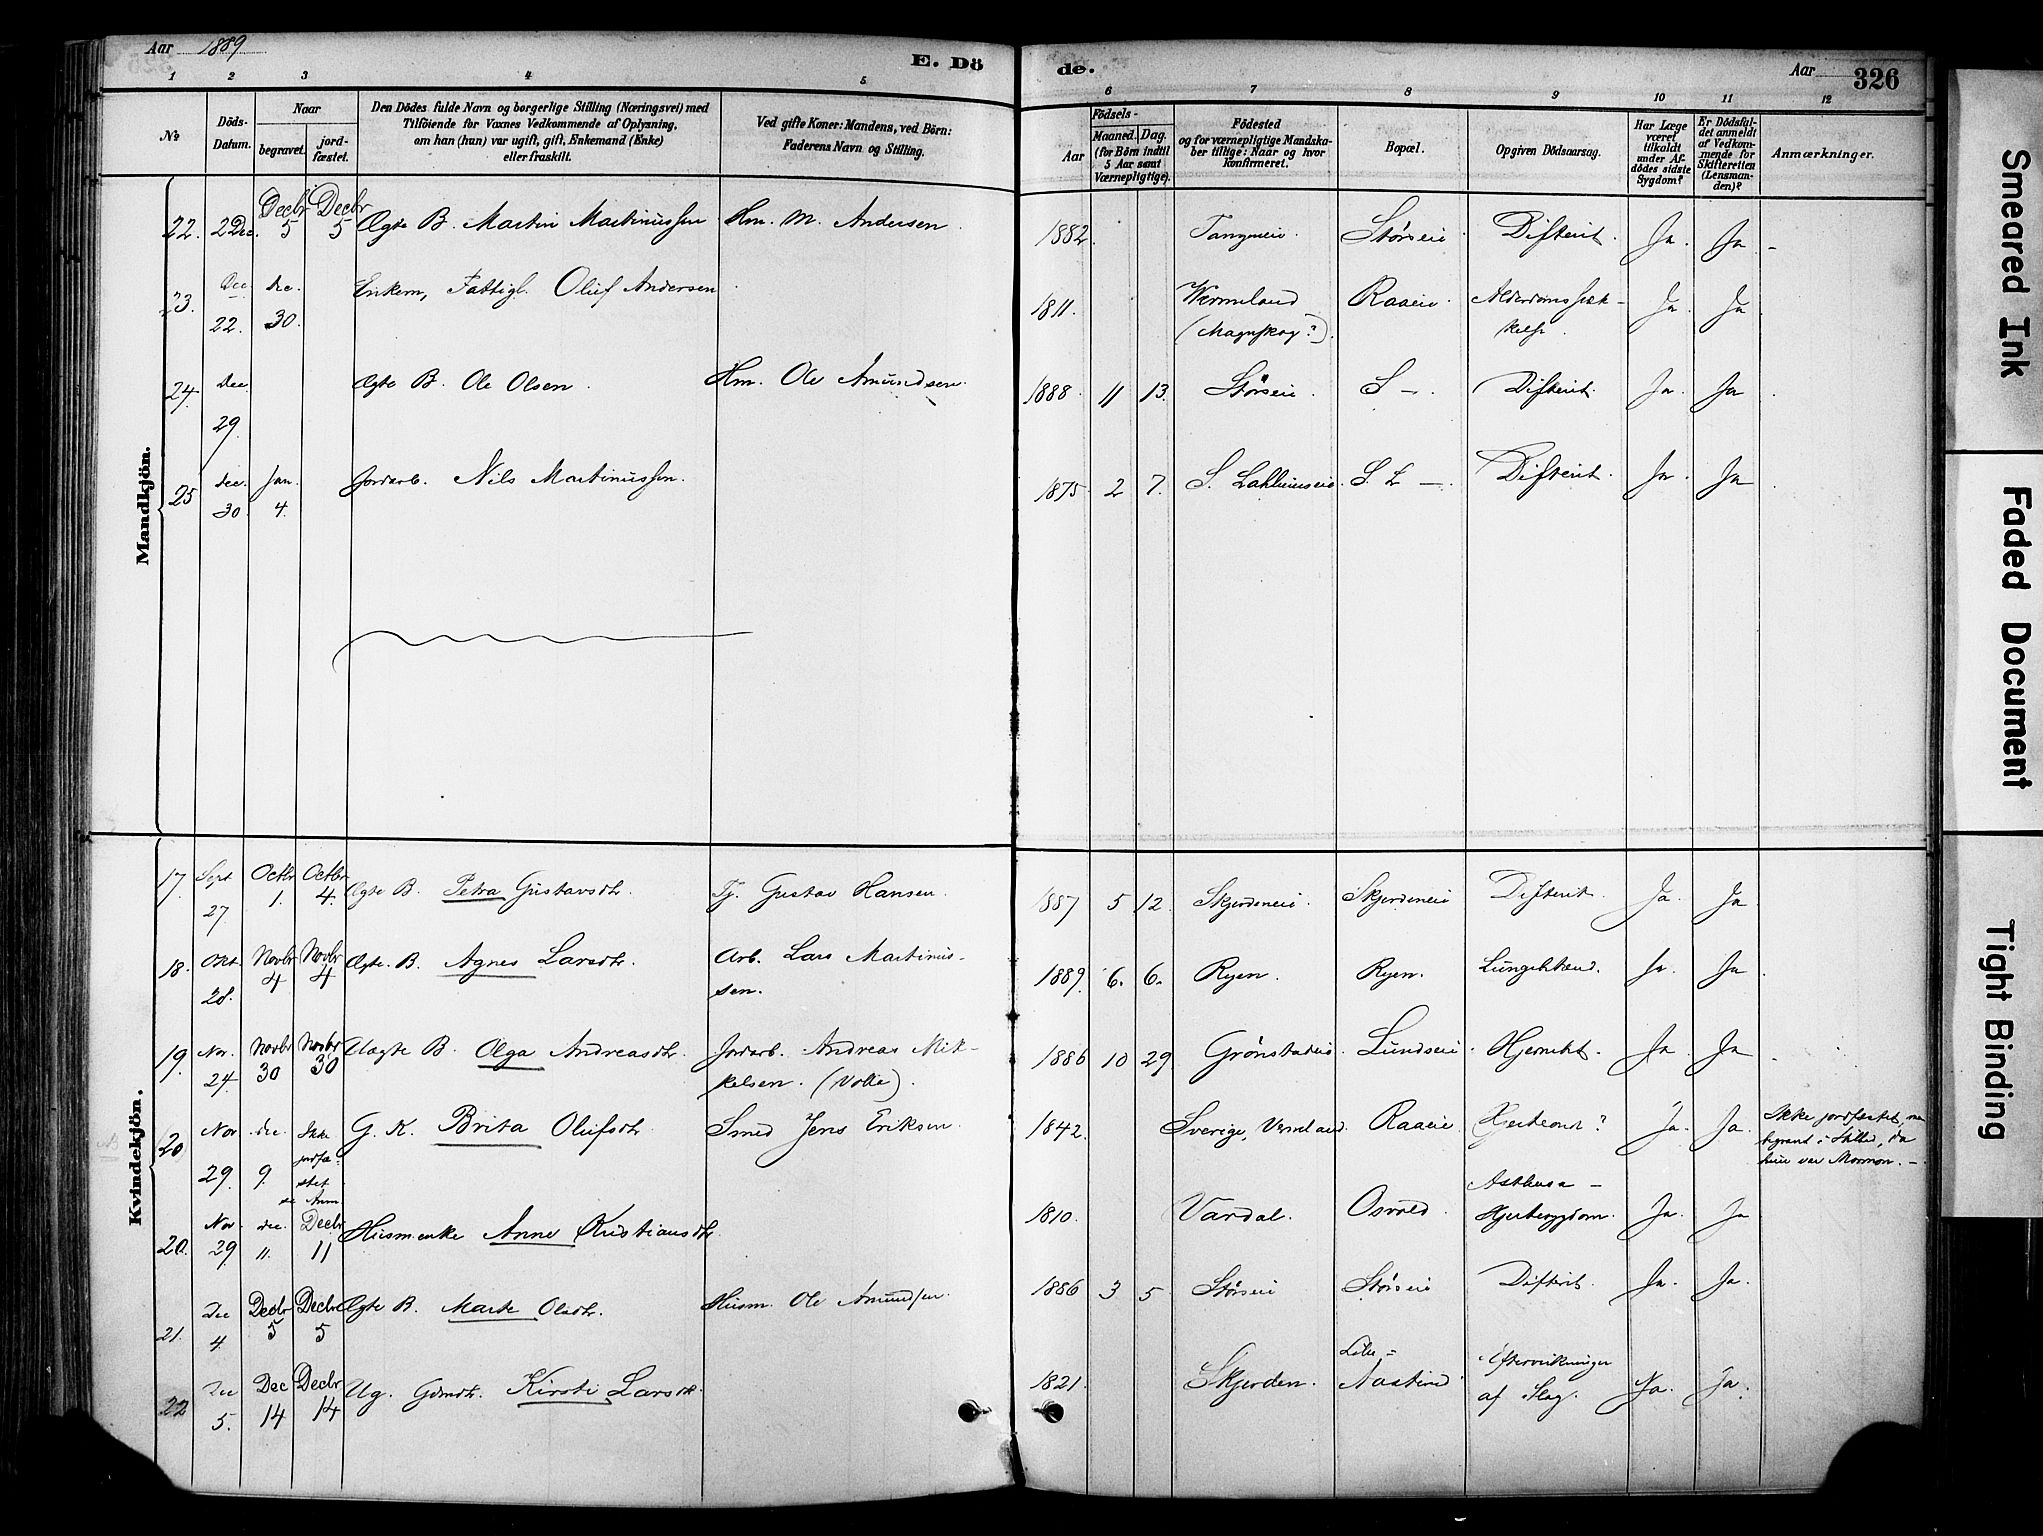 Aar 1889
E. Dö
de.
Aar
326
1 2 3 4 5 6 7 8 9 10 11 12
No
Döds-
Datum.
Naar
begravet.
jord-
fæstet.
Den Dödes fulde Navn og borgerlige Stilling (Næringsvei) med
Tilföiende for Voxnes Vedkommende af Oplysning,
om han (hun) var ugift, gift, Enkemand (Enke)
eller fraskilt.
Ved gifte Koner: Mandens, ved Börn:
Faderens Navn og Stilling.
Födsels-
Aar
Maaned. Dag.
(for Börn indtil
5 Aar samt
Værnepligtige).
Födested
og for værnepligtige Mandska-
ber tillige: Naar og hvor
konfirmeret.
Bopæl.
Opgiven Dödsaarsag.
Har Læge
været
tilkaldt
under Af-
dödes sidste
Sygdom?
Er Dödsfal-
det anmeldt
af Vedkom-
mende for
Skifteretten
(Lensman-
den)?
Anmærkninger.
Mandkjön.
22. 2 Dec. Decbr 5 Decbr 5 Ægte B. Martin Martinussen Hm. M. Andersen. 1882 Störseie. Difterit. Ja. Ja.
23. Dec 22. Dec. 30. Enkem, Fattigl. Oluf Andersen 1811. Vermeland Raaeie. Alderdomssvæk-
(Magnskog?). kelse. Ja. Ja.
24. Dec 29. Ægte B. Ole Olsen. Hm. Ole Amundsen. 1888. 11 13. Störseie. S —. Difterit. Ja. Ja
25 Dec. 30. Jan. 4. Jordarb. Nils Martinussen. 1875 2 7. S. S. L —. Difterit. Ja. Ja
Kvindekjön.
17. Sept 27. Octbr 1. Octbr 4. Ægte B. Petra Gustavsdtr. Tj. Gustav Hansen. 1887 5 12. Skjerdeneie. Skjerdeneie Difterit. Ja. Ja
18. Okt 28. Novbr 4 Novbr 4 Ægte B. Agnes Larsdtr. Arb. Lars Martinus-
sen. 1889. 6. 6. Ryen. Ryen. Ja. Ja
19. Nov. 24. Novbr 30 Novbr 30 Uægte B. Olga Andreasdtr. Jordarb. Andreas Mik-
kelsen. 1886 10 29 Grönstadeie Lundseie. Ja. Ja
20 Nov 29. dec. 9. Ikke
jordfæ-
stet
se Anm G. K. Brita Olufsdtr. Smed Jens Eriksen 1842. Sverige, Vermland. Raaeie. Ja. Ja. Ikke jordfæstet, men
begravet i Stilhed, da
hun var Mormon. —
20. Nov. 29. dec. 11. Decbr 11 Husmenke Anne Kristiansdtr. 1810. Vardal. Osvold. Asthma —
Hjertesygdom. Ja. Ja
21. Dec 4. Decbr 5 Decbr 5 Ægte B. Marte Olsdtr. Husm. Ole Amundsen. 1886 3 5 Störseie Störseie Difterit. Ja. Ja.
22 Dec 5. Dec 14 Decbr 14 Ug. Gdmdtr. Kirsti Larsdtr. 1821. Skjerden. Lille =
Aastad Eftervirkninger
af Slag. Ja. Ja.
Smeared Ink
Faded Document
Tight Binding